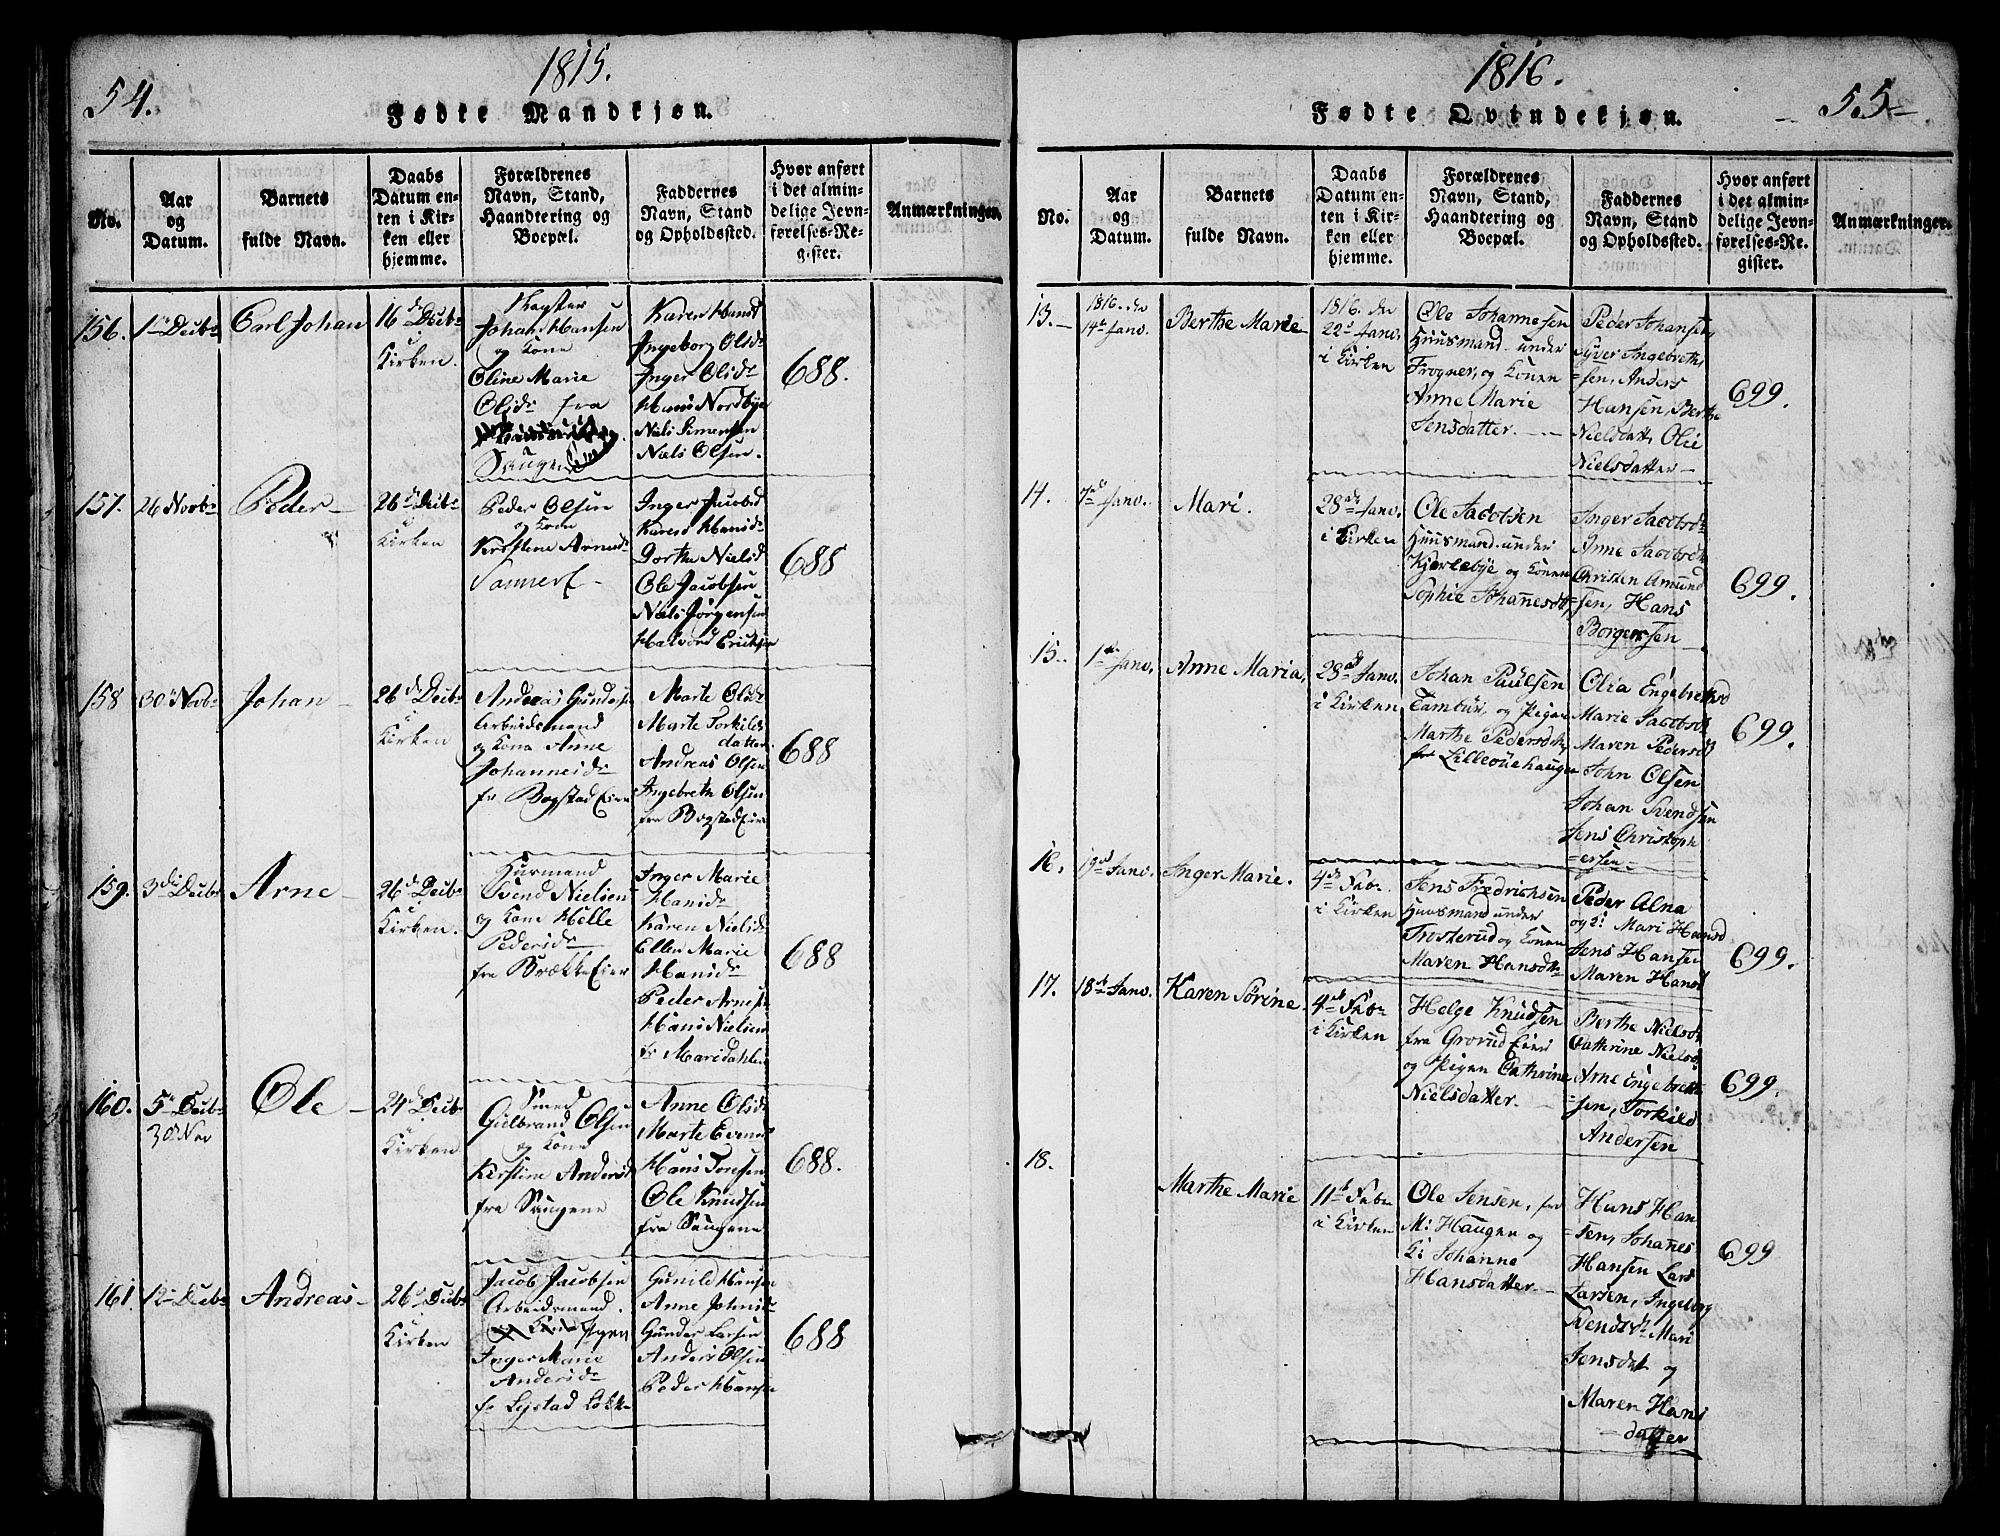 54.
1815.
Fødte Mandkjøn.
No.
Aar
og
Datum.
Barnets
fulde Navn.
Daabs
Datum en-
ten i Kir-
ken eller
hjemme.
Forældrenes
Navn, Stand,
Haandtering og
Boepæl.
Faddernes
Navn, Stand
og Opholdssted.
Hvor anført
i det almin-
delige Jevn-
førelses-Re-
gister.
Anmærkninger.
156.
Carl Johan
16
Kirken.
Johan Hansen
og Kone
Oline Marie
Olsdr fra
Ingeborg Olsdr
Inger Olsdr
Hans Nordbye
Niels Simensen
Niels Olsen.
688.
157.
26 Novbr
Peder
26 Decbr
Kirken
Peder Olsen
og Kone
Inger Jacobsd
Karen Hansdr
Dorthe Nielsd
Ole Jacobsen
Niels Jørgensen
Halvord Ericksen
688
158
30 Novbr
Johan
26 Decbr
Kirken
Andreas Gundersen
Arbeidsmand
og Kone Anne
Johannesdr
fr Bogstad Eier
Marte Olsdr
Marte Torkilds
datter
Andreas Olsen
Ingebreth Olsen
fra Bogstad Eier
688
159.
3de Decbr
Arne
26 Decbr
Kirken.
Huusmand
Svend Nielsen
og Kone Helle
Pedersdr
fra Brække Eier
Inger Marie
Hansdr
Karen Nielsdr
Ellen Marie
Hansdr
Peder Arnesen
Hans Nielsen
fr Maridahlen
688
160.
5 Decbr
30 Nov
Ole
24 Decbr
Kirken
Smed
Gulbrand Olsen
og Kone
Kirstine Andersd
fra Saugene
Anne Olsdr
Marte Evensd
Hans Tomesen
Ole Knudsen
fra Saugene
688.
161
12 Decbr
Andreas
26 Decbr
Kirken
Jacob Jacobsen
Arbeidsmand.
Inger Marie
Andersdr
Gunild Hansen
Anne Johnsdr
Gunder Larsen
Anders Olsen
Peder Hansen
688
1816.
55
Fødte Qvindekjøn.
No.
Aar
og
Datum.
Barnets
fulde Navn.
Daabs
Datum en-
ten i Kir-
ken eller
hjemme.
Forældrenes
Navn, Stand,
Haandtering og
Boepæl.
Faddernes
Navn, Stand
og Opholdssted.
Hvor anført
i det almin-
delige Jevn-
førelses-Re-
gister.
Anmærkninger.
13.
1816. den
14de Janv.
Berthe Marie
1816. den
22d Janv.
i Kirken
Ole Johannesen
Huusmand under
Frogner, og Konen
Anne Marie
Jensdatter.
Peder Johansen,
Syver Ingebreth
=sen, Anders
Hansen, Berthe
Nielsdatt, Olie
Nielsdatter
699.
14.
7de Janv.
Mari
28de Janv.
i Kirken
Ole Jacobsen
Huusmand under
Kjerlebye og Konen
Sophie Johanesdtt,
Inger Jacobsdr
Anne Jacobsdr
Christen Amund
=sen, Hans
Borgersen
699.
15.
1de Janv.
Anne Maria,
28de Janv.
i Kirken
Johan Paulsen
Tambur, og Pigen
Marthe Pedersdtr,
fr Lilleouehaugen
Olia Engebretsd
Marie Jacobsdr
Maren Pedersdr
John Olsen
Johan Svendsen
Jens Christoph
=ersen
699.
16.
19de Janv.
Inger Marie.
4de Febr.
i Kirken
Jens Fredrichsen
Huusmand under
Trosterud og Konen
Maren Hansdtr
Peder Alna
og K: Mari Hansd
Jens Hansen
Maren Hansd
699.
17.
18de Janv.
Karen Sørine
4de Febr
i Kirken
Helge Knudsen
fra Grorud Eier
og Pigen Cathrine
Nielsdatter.
Berthe Nielsdr
Cathrine Nielsdr
Arne Engebreth
=sen, Torkild
Andersen
699.
18.
Marthe Marie
11te Febr
i Kirken
Ole Jensen, fra
M: Haugen og
K: Johanne
Hansdatter
Hans Han
=sen, Johanes
Hansen Lars
Larsen, Ingeborg
Svendsdr Mari
Jensdat og
Maren Hans
datter
699